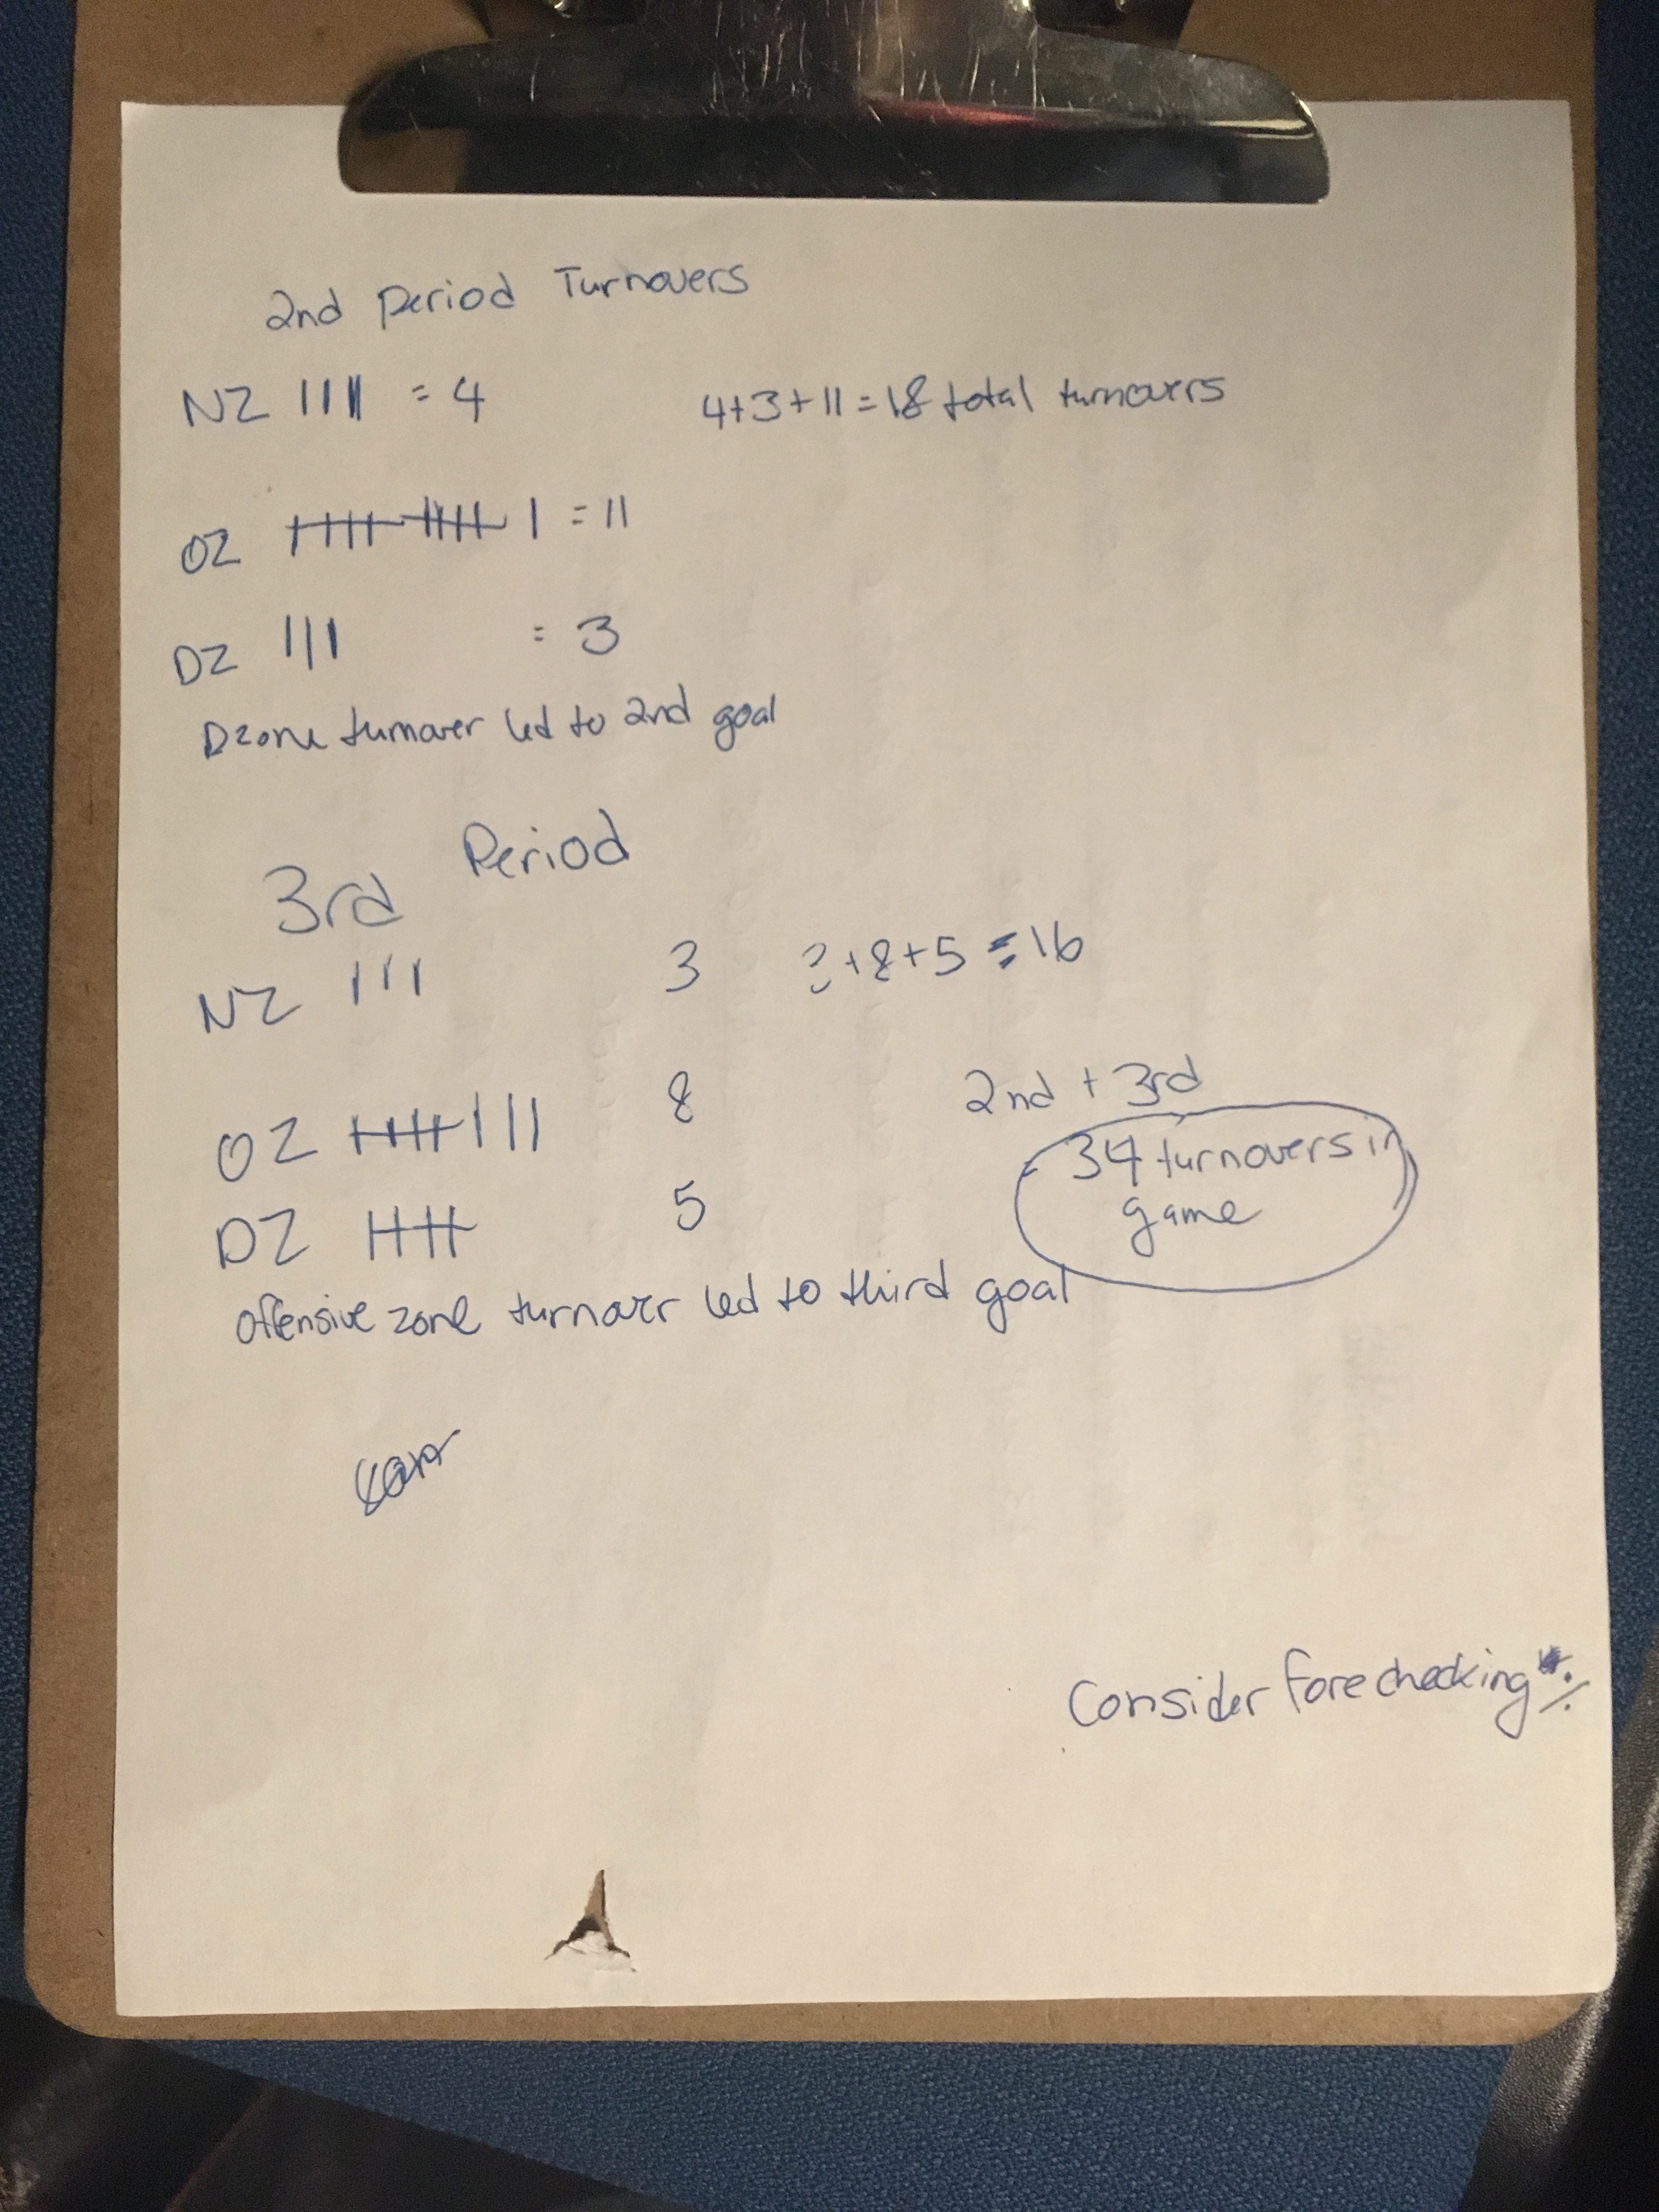 2nd Period Turnovers
NZ |||| = 4 4+3+11=18 total turnovers
OZ |||| |||| | = 11
DZ ||| = 3
Dzone turnover led to 2nd goal
3rd Period
NZ ||| 3 3+8+5 = 16
OZ |||| ||| 8
2nd + 3rd
34 turnovers in
game
DZ |||| 5
Offensive zone turnover led to third goal
Consider Forechecking %